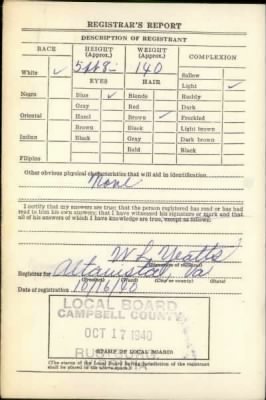 REGISTRAR'S REPORT
DESCRIPTION OF REGISTRANT
RACE HEIGHT (Approx.) WEIGHT (Approx.) COMPLEXION
White ✓ 5 ft 8 140 Sallow
EYES HAIR Light ✓
Negro Blue ✓ Blonde Ruddy
Gray Red Dark
Oriental Hazel Brown ✓ Freckled
Brown Black Light brown
Indian Black Gray Dark brown
Bald Black
Filipino
Other obvious physical characteristics that will aid in identification
None
I certify that my answers are true; that the person registered has read or has had
read to him his own answers; that I have witnessed his signature or mark and that
all of his answers of which I have knowledge are true, except as follows:
W L Yeatts
(Signature of registrar)
Registrar for Altavista, Va
(Precinct) (Ward) (City or county) (State)
Date of registration 10/16/40
LOCAL BOARD
CAMPBELL COUNTY
OCT 17 1940
STAMP OF LOCAL BOARD
(The stamp of the Local Board having jurisdiction of the registrant
shall be placed in the above space)